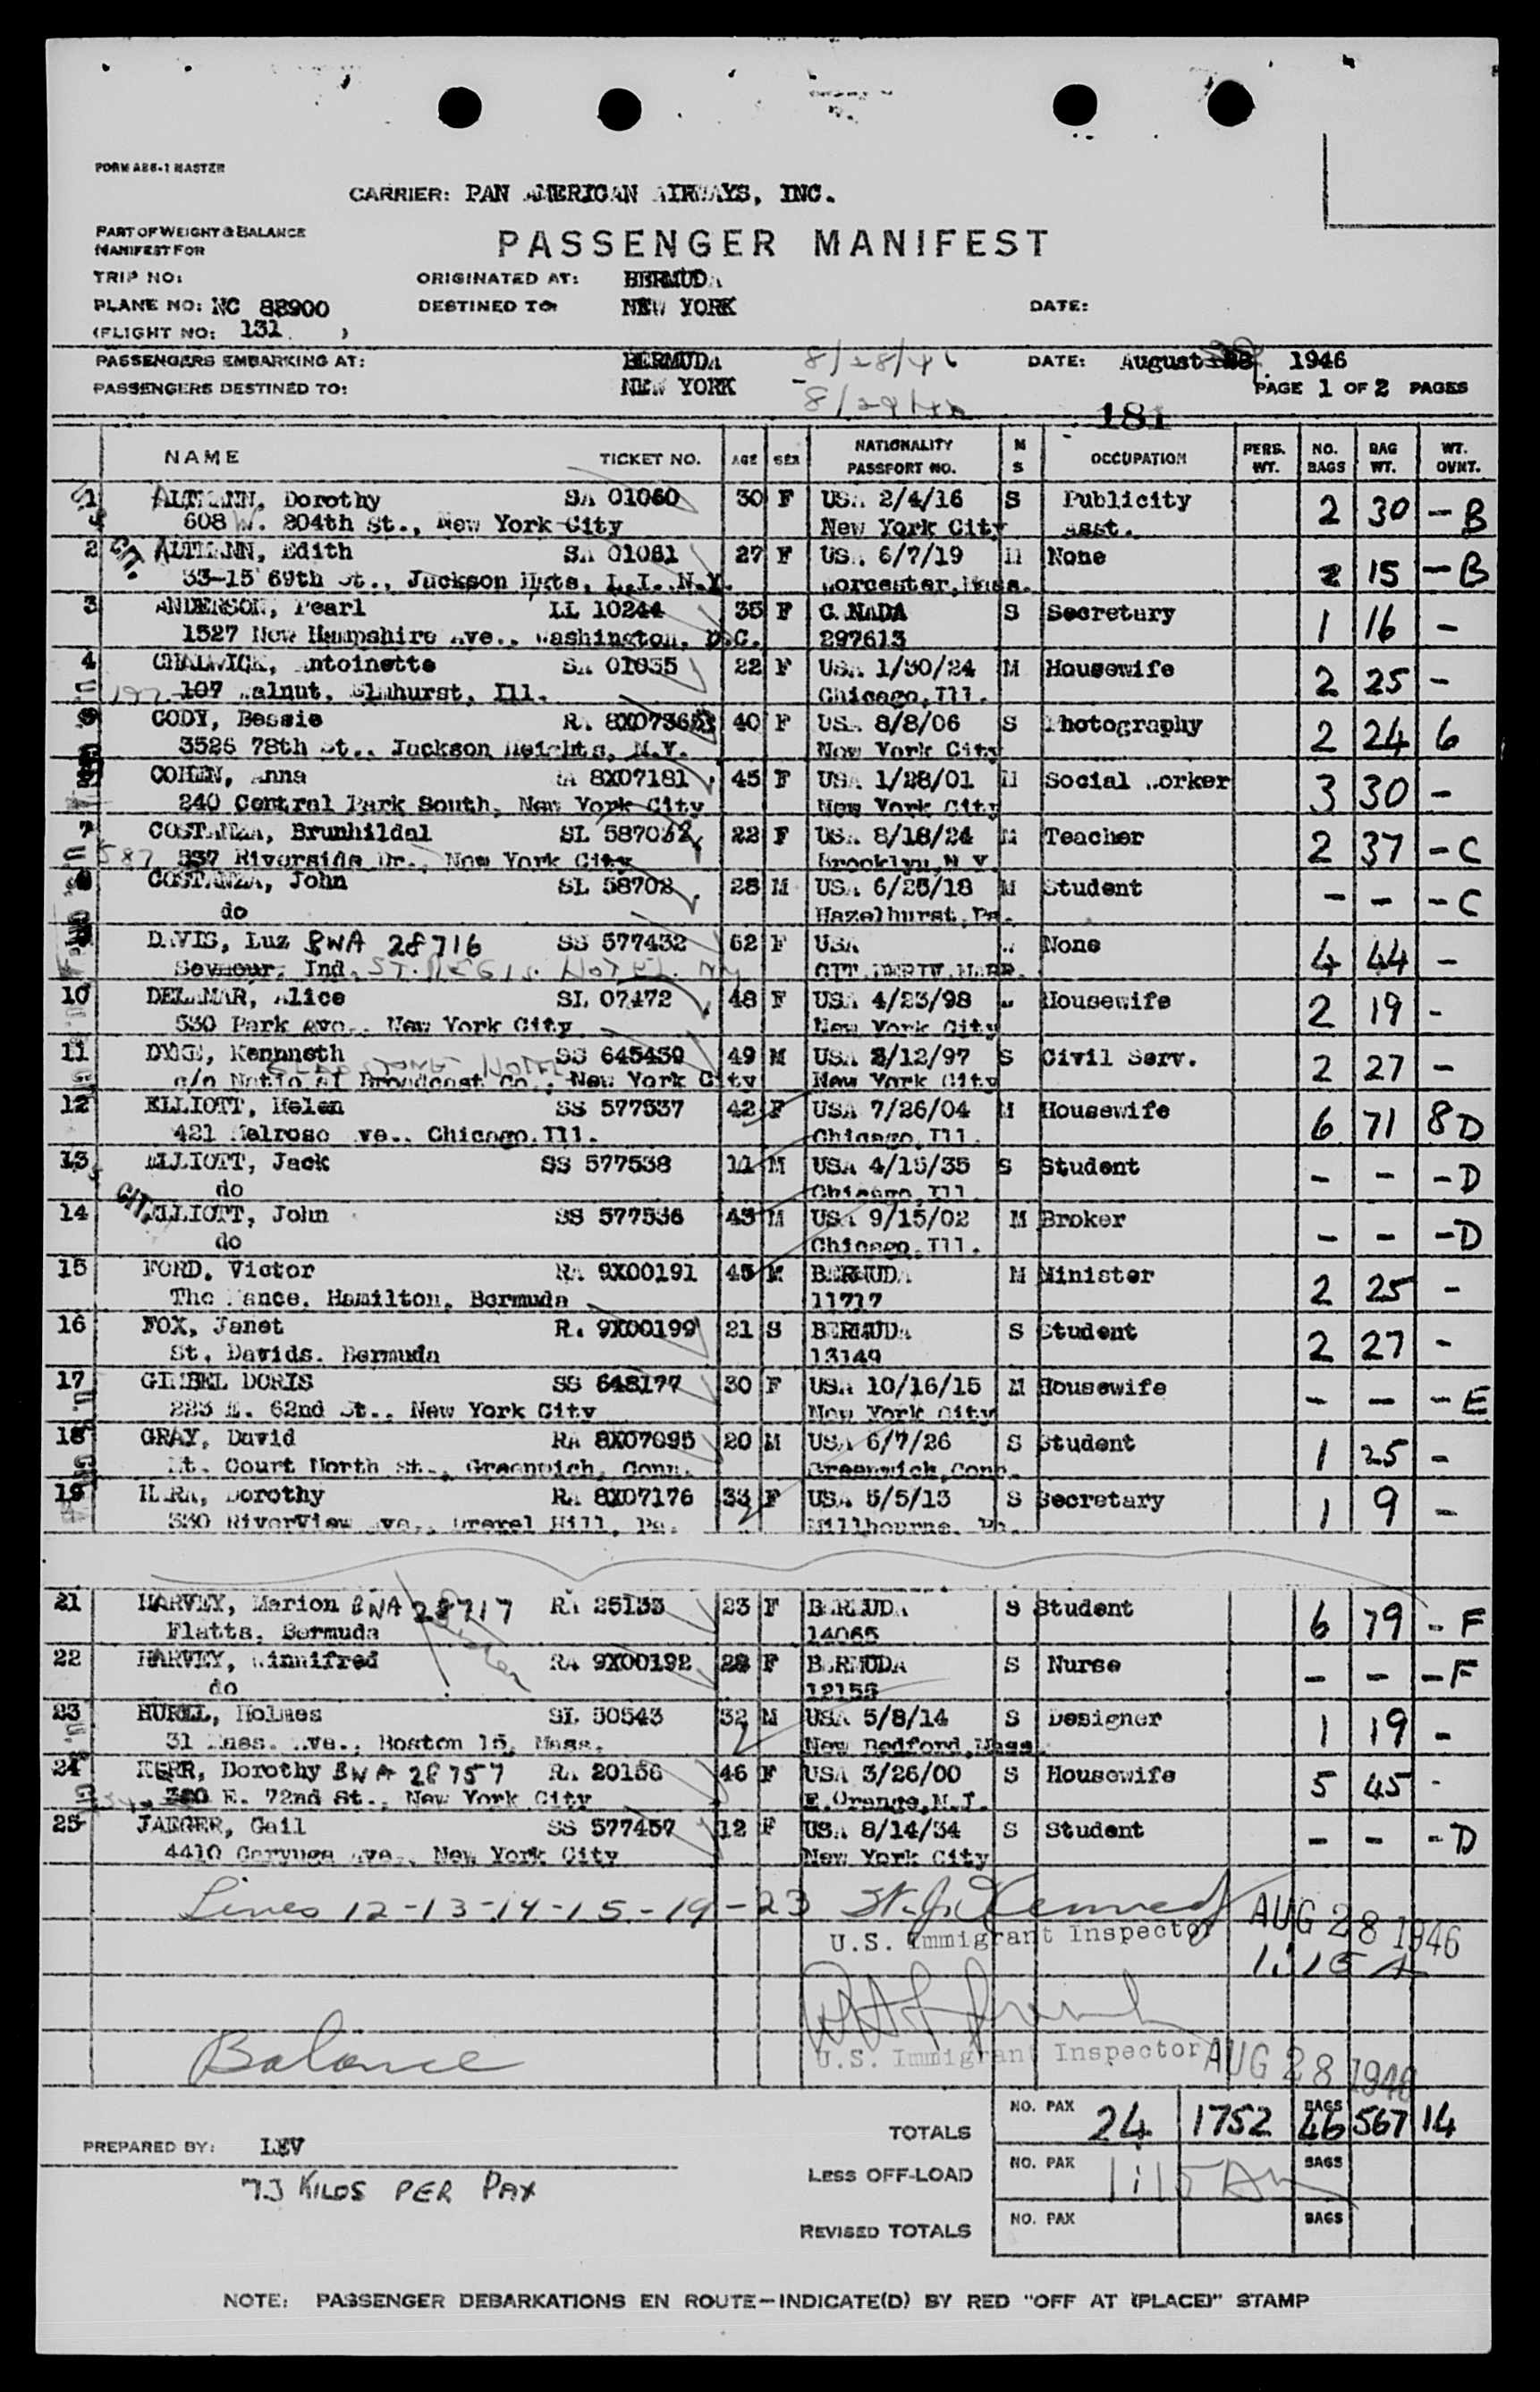 FORM ABS-1 MASTER
CARRIER: PAN AMERICAN AIRWAYS, INC.
PART OF WEIGHT & BALANCE
MANIFEST FOR
PASSENGER MANIFEST
TRIP NO: ORIGINATED AT: BERMUDA
PLANE NO: NC 88900 DESTINED TO: NEW YORK DATE:
(FLIGHT NO: 131 )
PASSENGERS EMBARKING AT: BERMUDA 8/28/46 DATE: August 1946
PASSENGERS DESTINED TO: NEW YORK PAGE 1 OF 2 PAGES
8/29/46
181
NAME TICKET NO. AGE SEX NATIONALITY PASSPORT NO. M S OCCUPATION PERS. WT. NO. BAGS BAG WT. WT. OVNT.
1 ALTMANN, Dorothy SA 01060 30 F USA 2/4/16 S Publicity 2 30 - B
608 W. 204th St., New York City New York City Asst.
2 CIT. ALTMANN, Edith SA 01061 27 F USA 6/7/19 M None 2 15 - B
33-15 69th St., Jackson Hgts, L.I. N.Y. Worcester, Mass.
3 ANDERSON, Pearl LL 10244 35 F CANADA S Secretary 1 16 -
1527 New Hampshire Ave., Washington, D.C. 297613
4 CHALWICK, Antoinette SA 01035 22 F USA 1/30/24 M Housewife 2 25 -
197 107 Walnut, Elmhurst, Ill. Chicago, Ill.
5 CODY, Bessie RA 8X0736 40 F USA 8/8/06 S Photography 2 24 6
3526 78th St., Jackson Heights, N.Y. New York City
COHEN, Anna RA 8X07181 45 F USA 1/28/01 M Social Worker 3 30 -
240 Central Park South, New York City New York City
7 COSTANZA, Brunhildal SL 58703 22 F USA 8/18/24 M Teacher 2 37 - C
587 537 Riverside Dr., New York City Brooklyn, N.Y.
8 COSTANZA, John SL 58702 28 M USA 6/25/18 M Student - - - C
do Hazelhurst, Pa.
DAVIS, Luz BWA 28716 SS 577432 62 F USA W None 4 44 -
Seymour, Ind. ST. REGIS HOTEL NY CIT. DERIV. MARR.
10 DELAMAR, Alice SL 07472 48 F USA 4/23/98 Housewife 2 19 -
530 Park Ave., New York City New York City
11 DYKE, Kennneth SS 645430 49 M USA /12/97 S Civil Serv. 2 27 -
GLADSTONE HOTEL
c/o National Broadcast Co., New York City New York City
12 ELLIOTT, Helen SS 577537 42 F USA 7/26/04 M Housewife 6 71 8 D
421 Melrose Ave., Chicago, Ill. Chicago, Ill.
13 ELLIOTT, Jack SS 577538 11 M USA 4/15/35 S Student - - - D
do Chicago, Ill.
14 CIT. ELLIOTT, John SS 577536 43 M USA 9/15/02 M Broker - - - D
do Chicago, Ill.
15 FORD, Victor RA 9X00191 45 M BERMUDA M Minister 2 25 -
The Manse, Hamilton, Bermuda 11717
16 FOX, Janet RA 9X00199 21 S BERMUDA S Student 2 27 -
St. Davids, Bermuda 13149
17 GIMBEL DORIS SS 648177 30 F USA 10/16/15 M Housewife - - - E
223 E. 62nd St., New York City New York City
18 GRAY, David RA 8X07095 20 M USA 6/7/26 S Student 1 25 -
Lt. Court North St., Greenwich, Conn. Greenwich, Conn.
19 HARA, Dorothy RA 8X07176 33 F USA 5/5/13 S Secretary 1 9 -
330 RiverView Ave., Drexel Hill, Pa. Millbourne, Pa.
21 HARVEY, Marion BWA 28717 RA 25133 23 F BERMUDA S Student 6 79 - F
Flatts, Bermuda 14065
22 HARVEY, Winnifred RA 9X00192 28 F BERMUDA S Nurse - - - F
do 12155
23 HURLL, Holmes SL 50543 32 M USA 5/8/14 S Designer 1 19 -
31 Mass. Ave., Boston 15, Mass. New Bedford, Mass.
24 KERR, Dorothy BWA 28757 RA 20156 46 F USA 3/26/00 S Housewife 5 45 -
E. 72nd St., New York City E. Orange, N.J.
25 JAEGER, Gail SS 577457 12 F USA 8/14/34 S Student - - - D
4410 Ave., New York City New York City
Lines 12-13-14-15-19-23
U.S. Immigrant Inspector AUG 28 1946
1:15 A
Balance
U.S. Immigrant Inspector AUG 28 1946
TOTALS NO. PAX 24 1752 BAGS 46 567 14
PREPARED BY: LEV
LESS OFF-LOAD NO. PAX 1:15 AM BAGS
73 KILOS PER PAX
REVISED TOTALS NO. PAX BAGS
NOTE: PASSENGER DEBARKATIONS EN ROUTE-INDICATE(D) BY RED "OFF AT (PLACE)" STAMP